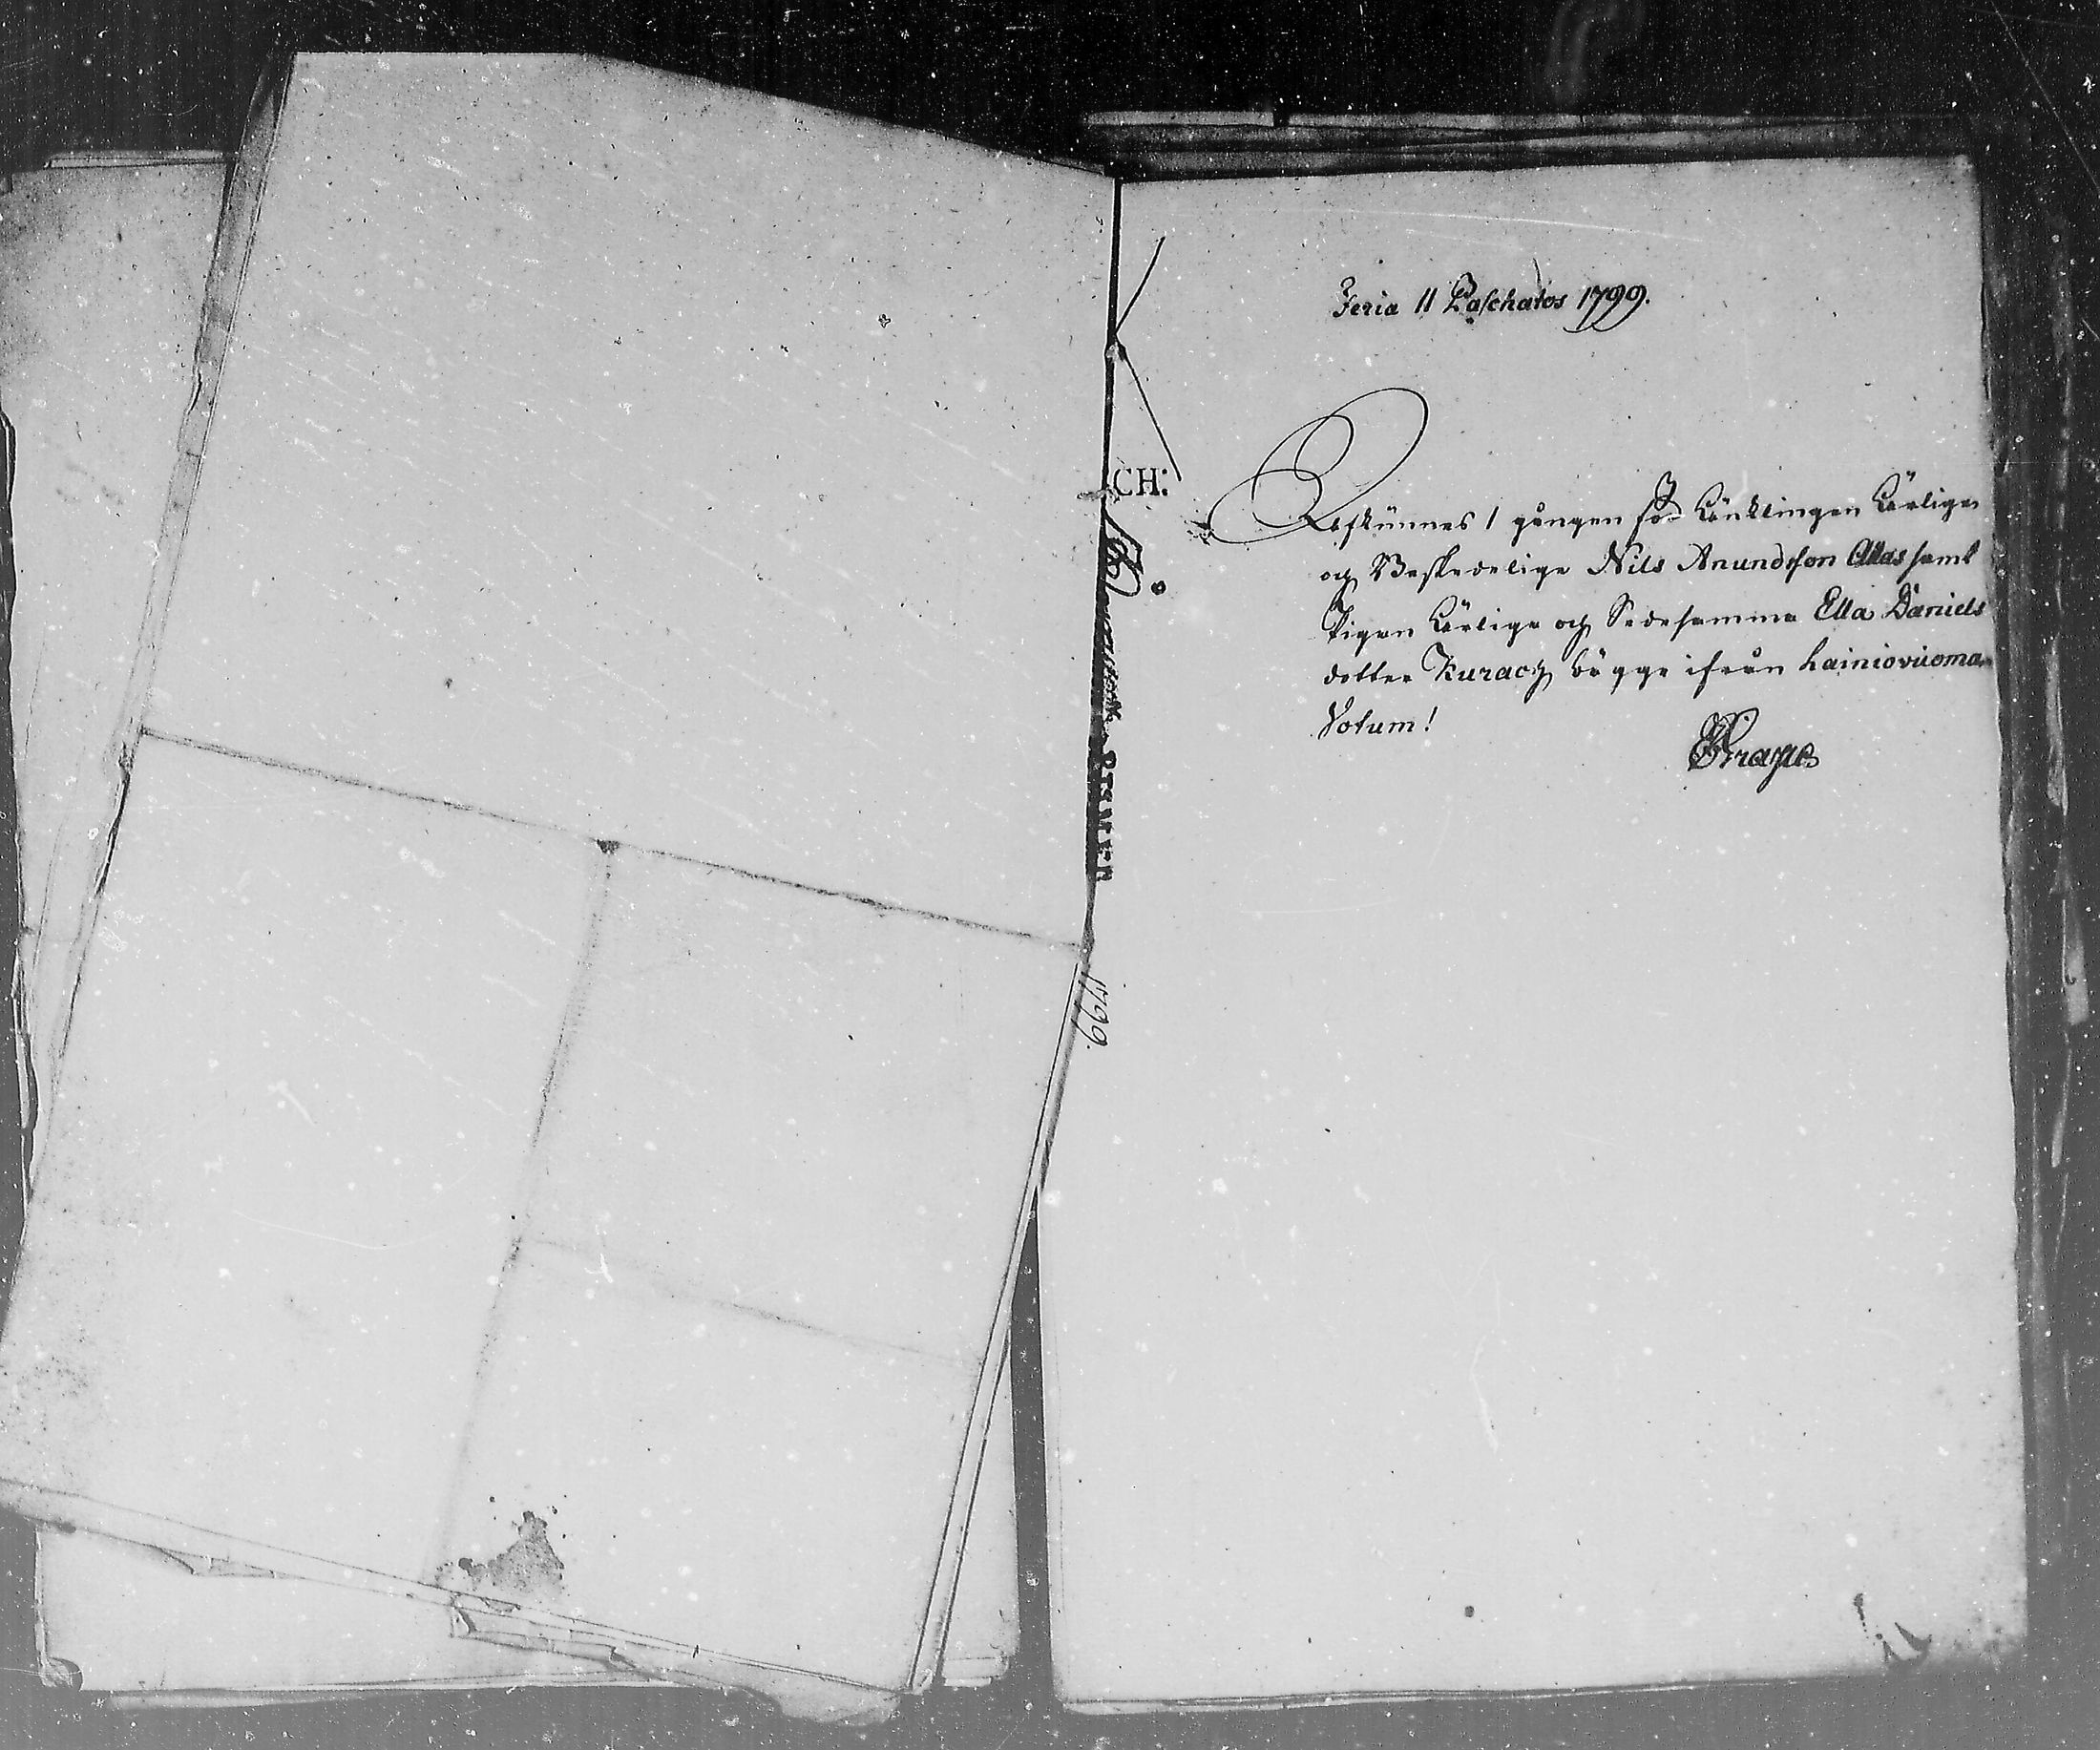 Feria II Paschatos 1799.
CH:
Afkünnes 1 gången för Ünklingen Ärlige
och Beskedelige Nils Anundsson Allas samt
Pigan Ärliga och Sedesamma Ella Daniels
dotter Kurach bägge ifrån hainiovuoma
Votum!
1799.